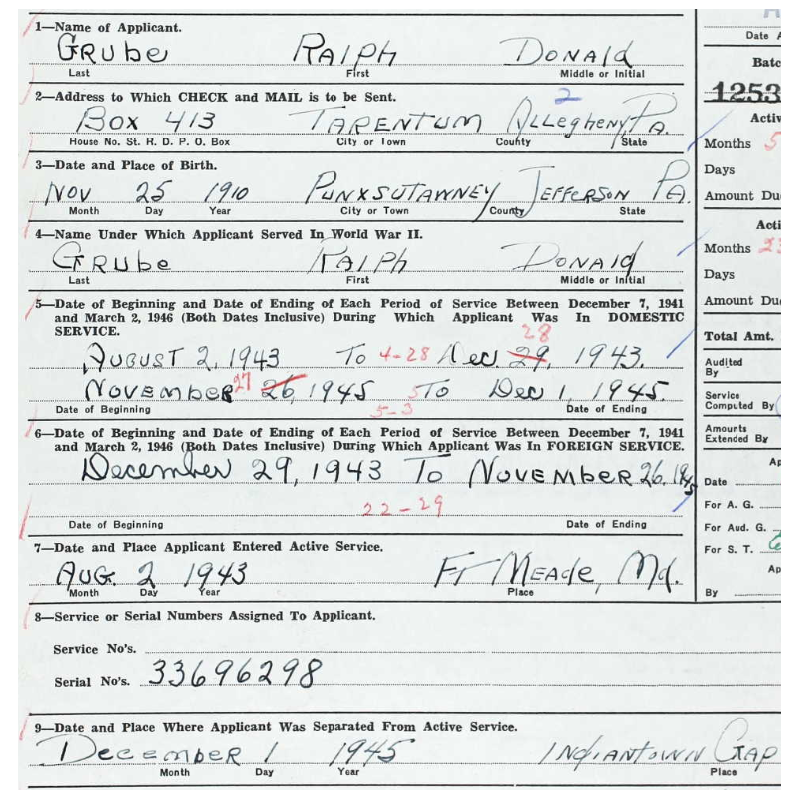 1—Name of Applicant.
GRUbe RALPH DONALD
Last First Middle or Initial
2—Address to Which CHECK and MAIL is to be Sent.
2
Box 413 TARENTUM Allegheny, PA.
House No. St. R. D. P. O. Box City or Town County State
3—Date and Place of Birth.
NOV 25 1910 PUNXSUTAWNEY JEFFERSON PA.
Month Day Year City or Town County State
4—Name Under Which Applicant Served In World War II.
GRUbe RALPH DONALD
Last First Middle or Initial
5—Date of Beginning and Date of Ending of Each Period of Service Between December 7, 1941
and March 2, 1946 (Both Dates Inclusive) During Which Applicant Was In DOMESTIC
SERVICE.
28
AUGUST 2, 1943 To 4-28 Dec. 29, 1943.
NOVEMBER 27 26, 1945 5 To Dec 1, 1945.
5-5
Date of Beginning Date of Ending
6—Date of Beginning and Date of Ending of Each Period of Service Between December 7, 1941
and March 2, 1946 (Both Dates Inclusive) During Which Applicant Was In FOREIGN SERVICE.
December 29, 1943 To NOVEMBER 26, 1945
22-29
Date of Beginning Date of Ending
7—Date and Place Applicant Entered Active Service.
AUG. 2 1943 FT MEADE, Md.
Month Day Year Place
8—Service or Serial Numbers Assigned To Applicant.
Service No's.
Serial No's. 33696298
9—Date and Place Where Applicant Was Separated From Active Service.
December 1 1945 INDIANTOWN GAP
Month Day Year Place
Date A
Batc
1253
Activ
Months 5
Days
Amount Du
Acti
Months 23
Days
Amount Du
Total Amt.
Audited
By
Service
Computed By
Amounts
Extended By
Ap
Date
For A. G.
For Aud. G.
For S. T.
Ap
By